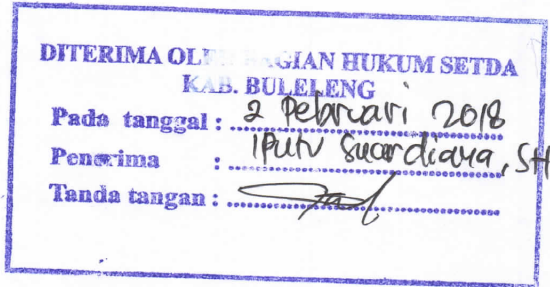 DITERIMA OLEH BAGIAN HUKUM SETDA
KAB. BULELENG
Pada tanggal : 2 Pebruari 2018
Penerima : I Putu Suardiana, SH
Tanda tangan :